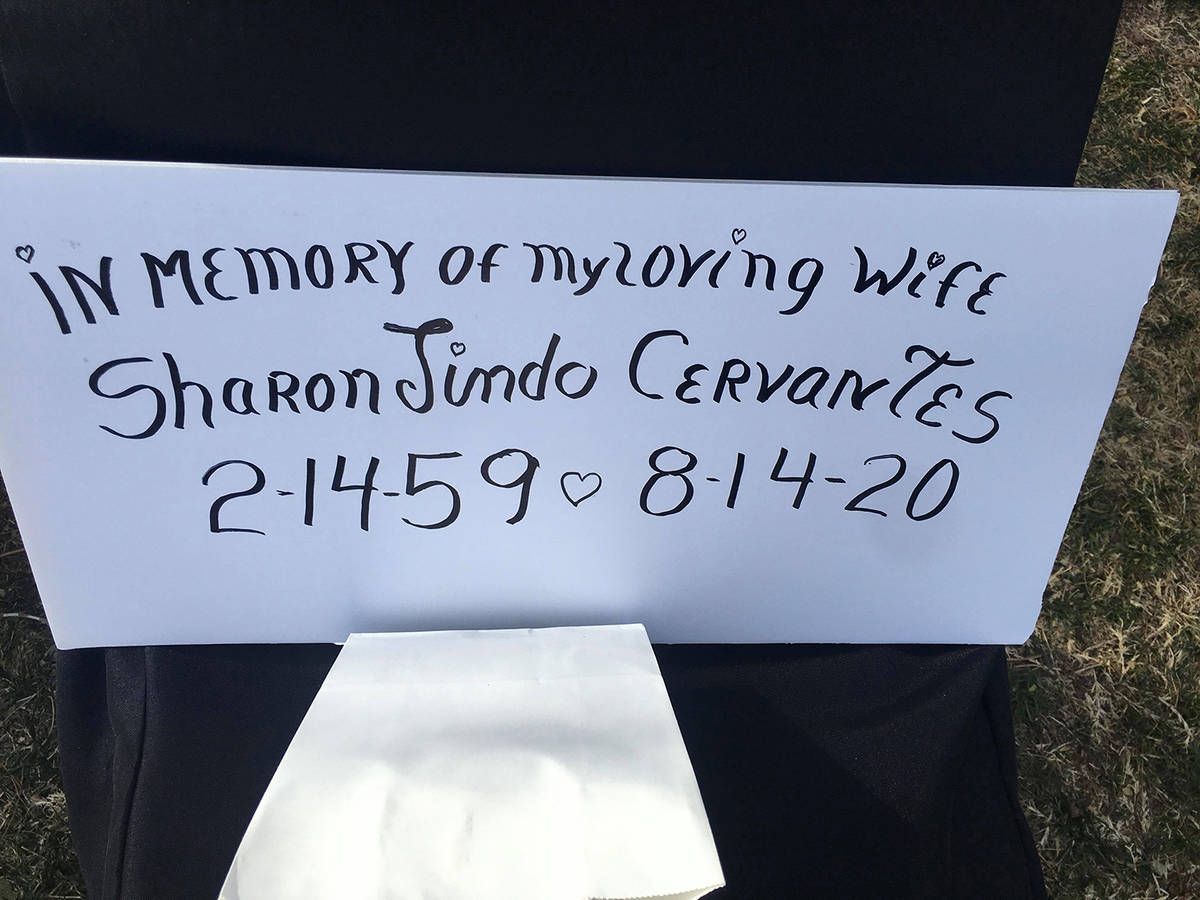 iN MEMORY Of my loving Wife
Sharon Jindo CERvanTES
2-14-59 ♡ 8-14-20